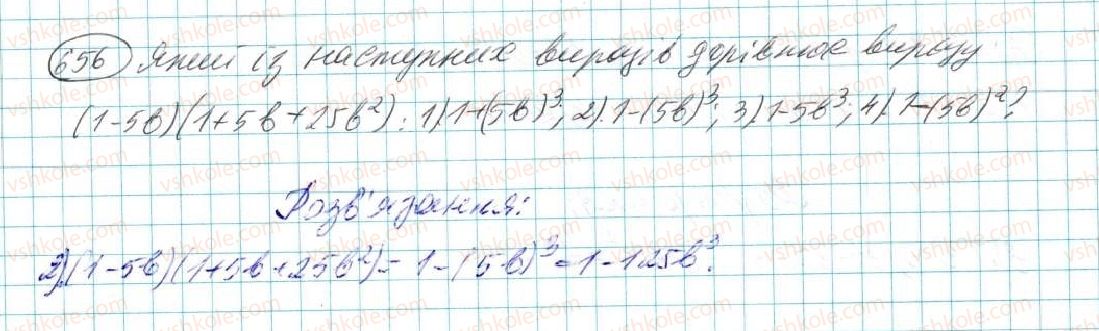 656 Який із наступних виразів дорівнює виразу
(1-5b)(1+5b+25b²): 1) 1+(5b)³; 2) 1-(5b)³; 3) 1-5b³; 4) 1-(5b)²?
Розв'язання:
2) (1-5b)(1+5b+25b²)=1-(5b)³=1-125b³.